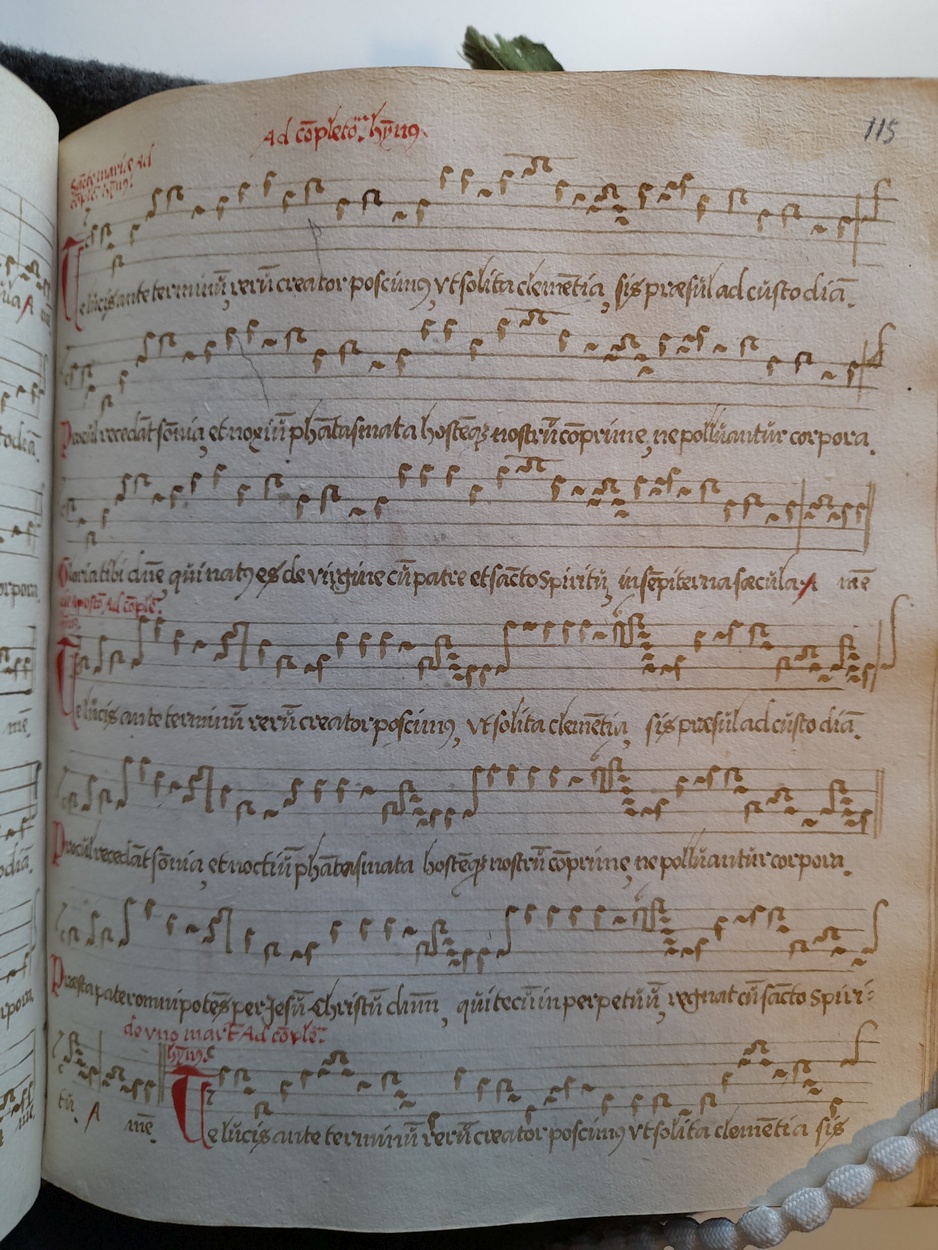 Ad cõpletoꝝ. hỹnꝰ.
115
Sancte mariæ Ad
cõple. hỹnꝰ.
Te lucis ante terminũ, rerũ creator poscimꝰ, vt solita clemẽtia, sis præsul ad custodiã.
Procul recedãt sõnia, et noxiũ phãtasmata hostẽqꝫ nostrũ cõprime, ne polluantur corpora.
Gloria tibi dñe, qui natꝰ es de virgine cũ patre et sãcto Spiritu, in sẽpiterna sæcula A mẽ
de apostõ. Ad cõple.
hỹnꝰ.
Te lucis ante terminũ rerũ creator poscimꝰ, vt solita clemẽtia, sis præsul ad custodiã.
Procul recedãt sõnia, et noctiũ phãtasmata hostẽqꝫ nostrũ cõprime, ne polluantur corpora.
Præsta pater omnipotẽs per Jesũ Christũ dñm, qui tecũ in perpetuũ, regnat cũ sãcto Spiri-
de vno mart̃. Ad cõple.
hỹnꝰ.
tu. A mẽ.
Te lucis ante terminũ rerũ creator poscimꝰ vt solita clemẽtia sis